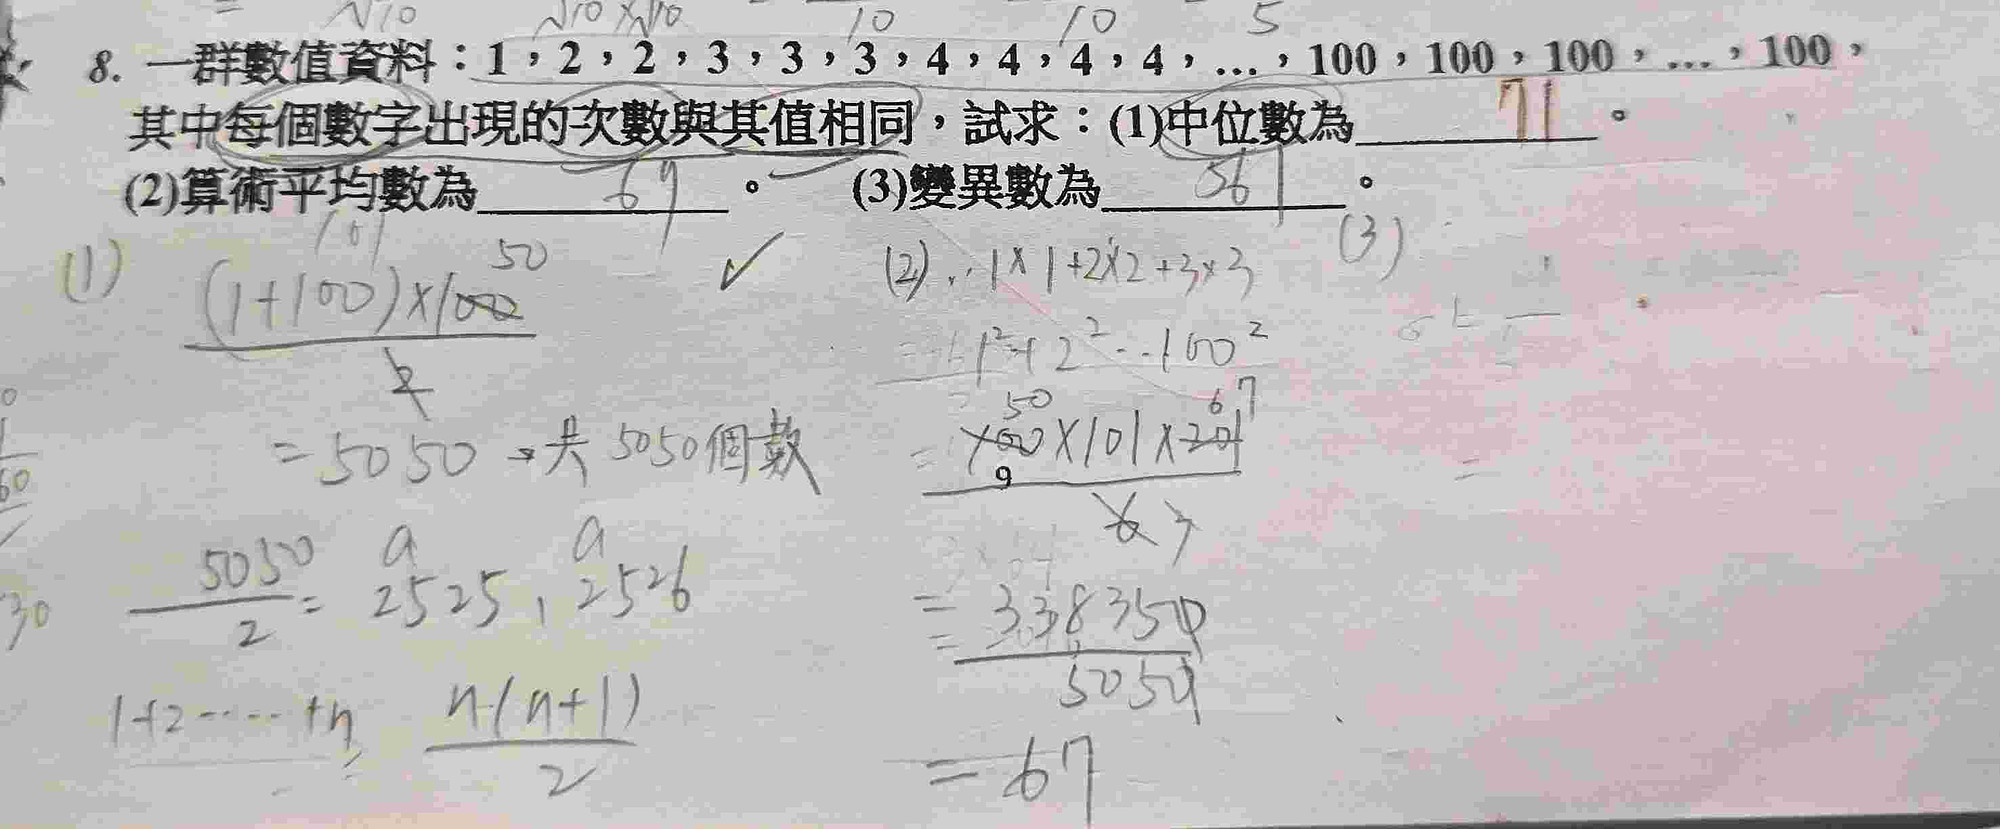 √10 √10×√10 10 10 5
8. 一群數值資料：1，2，2，3，3，3，4，4，4，4，…，100，100，100，…，100，
其中每個數字出現的次數與其值相同，試求：(1)中位數為 71 。
(2)算術平均數為 67 。 (3)變異數為 561 。
(1) 101 50 (2) 1×1+2×2+3×3 (3)
(1+100)×100
2
= 1²+2²…100²
50 67
= 100×101×201
9
6 3
=5050 共5050個數
5050
2
= a2525, a2526
= 338350
5050
1+2-----+n = n(n+1)
2
= 67
σ² =
=
60
30